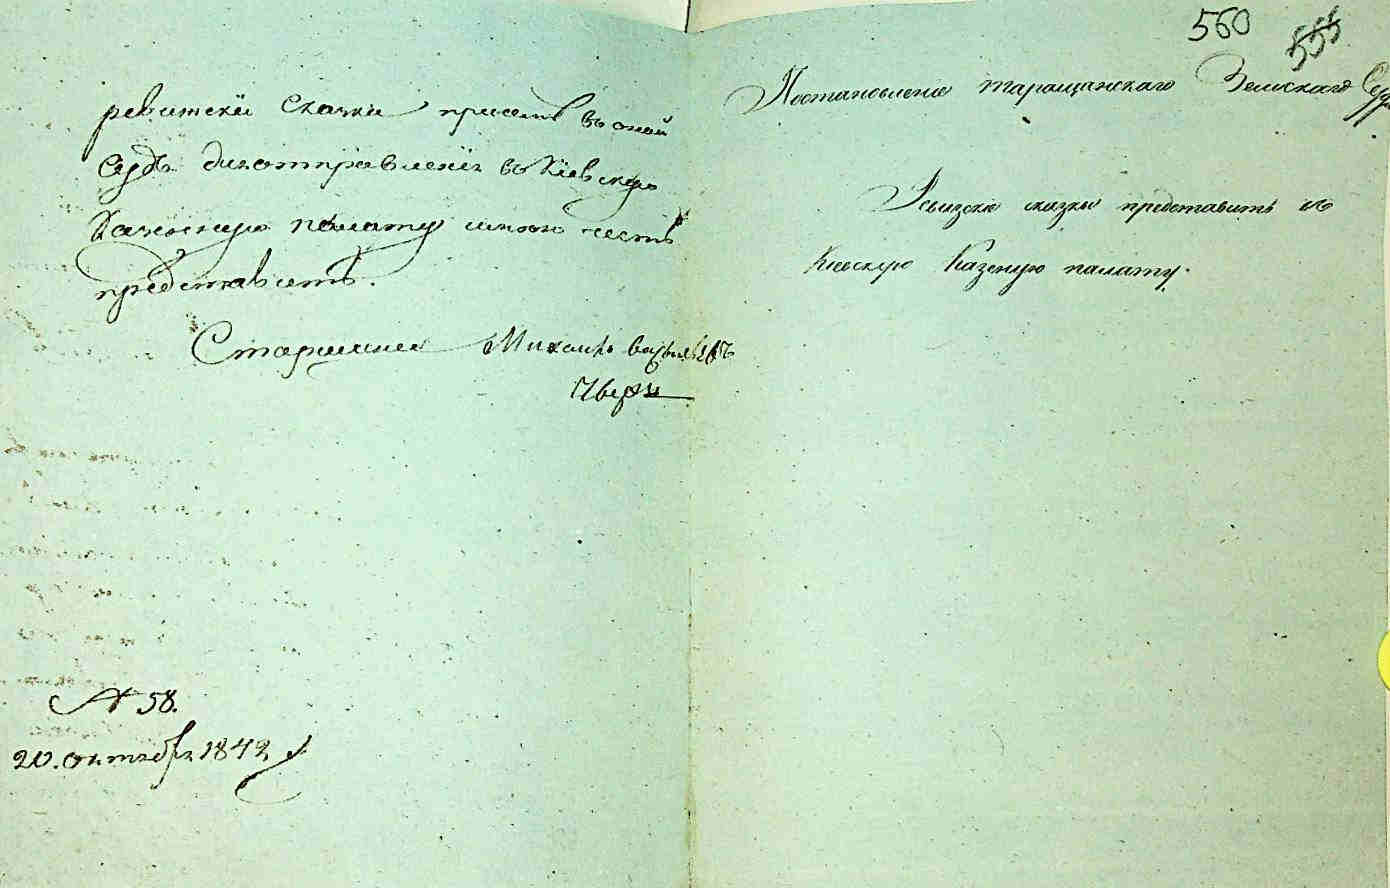 ревизскіи сказки присемъ въ оной
Судъ для отправленія въ Кіевскую
Казенную палату имѣю честь
представить.
Старшина Михаилъ
№ 58.
20. октября 1842
560
555
Постановленіе Таращанскаго Земскаго Суда
Ревизскіе сказки представить въ
Кіевскую Казеную палату.